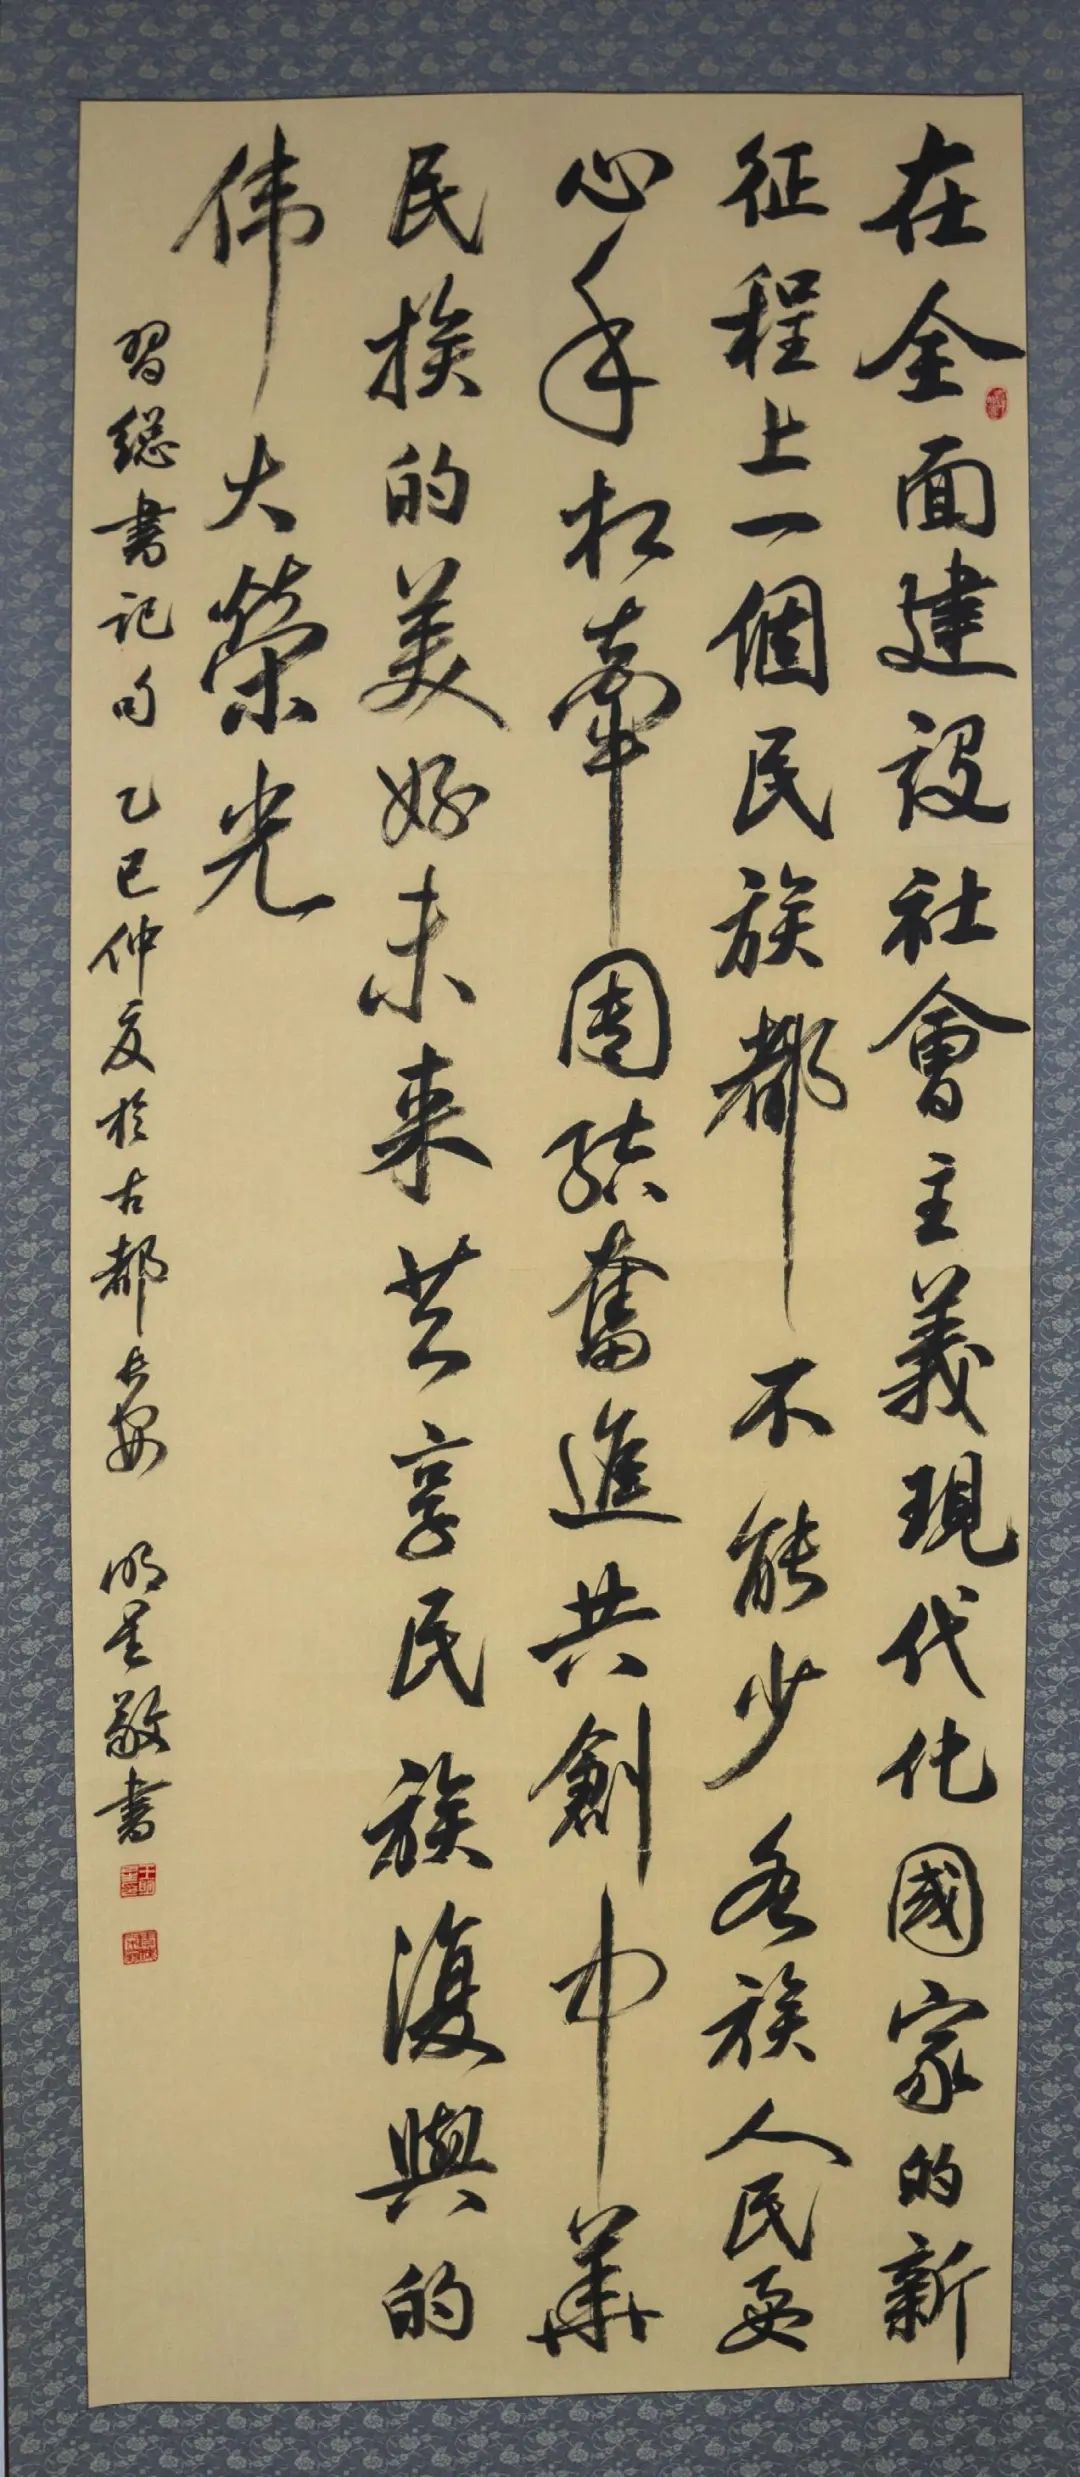 在全面建设社會主義現代化國家的新
征程上一個民族都不能少各族人民要
心手相牽團結奮進共創中華
民族的美好未来共享民族復興的
伟大榮光
習總書記句 乙巳仲夏於古都長安 明星敬書